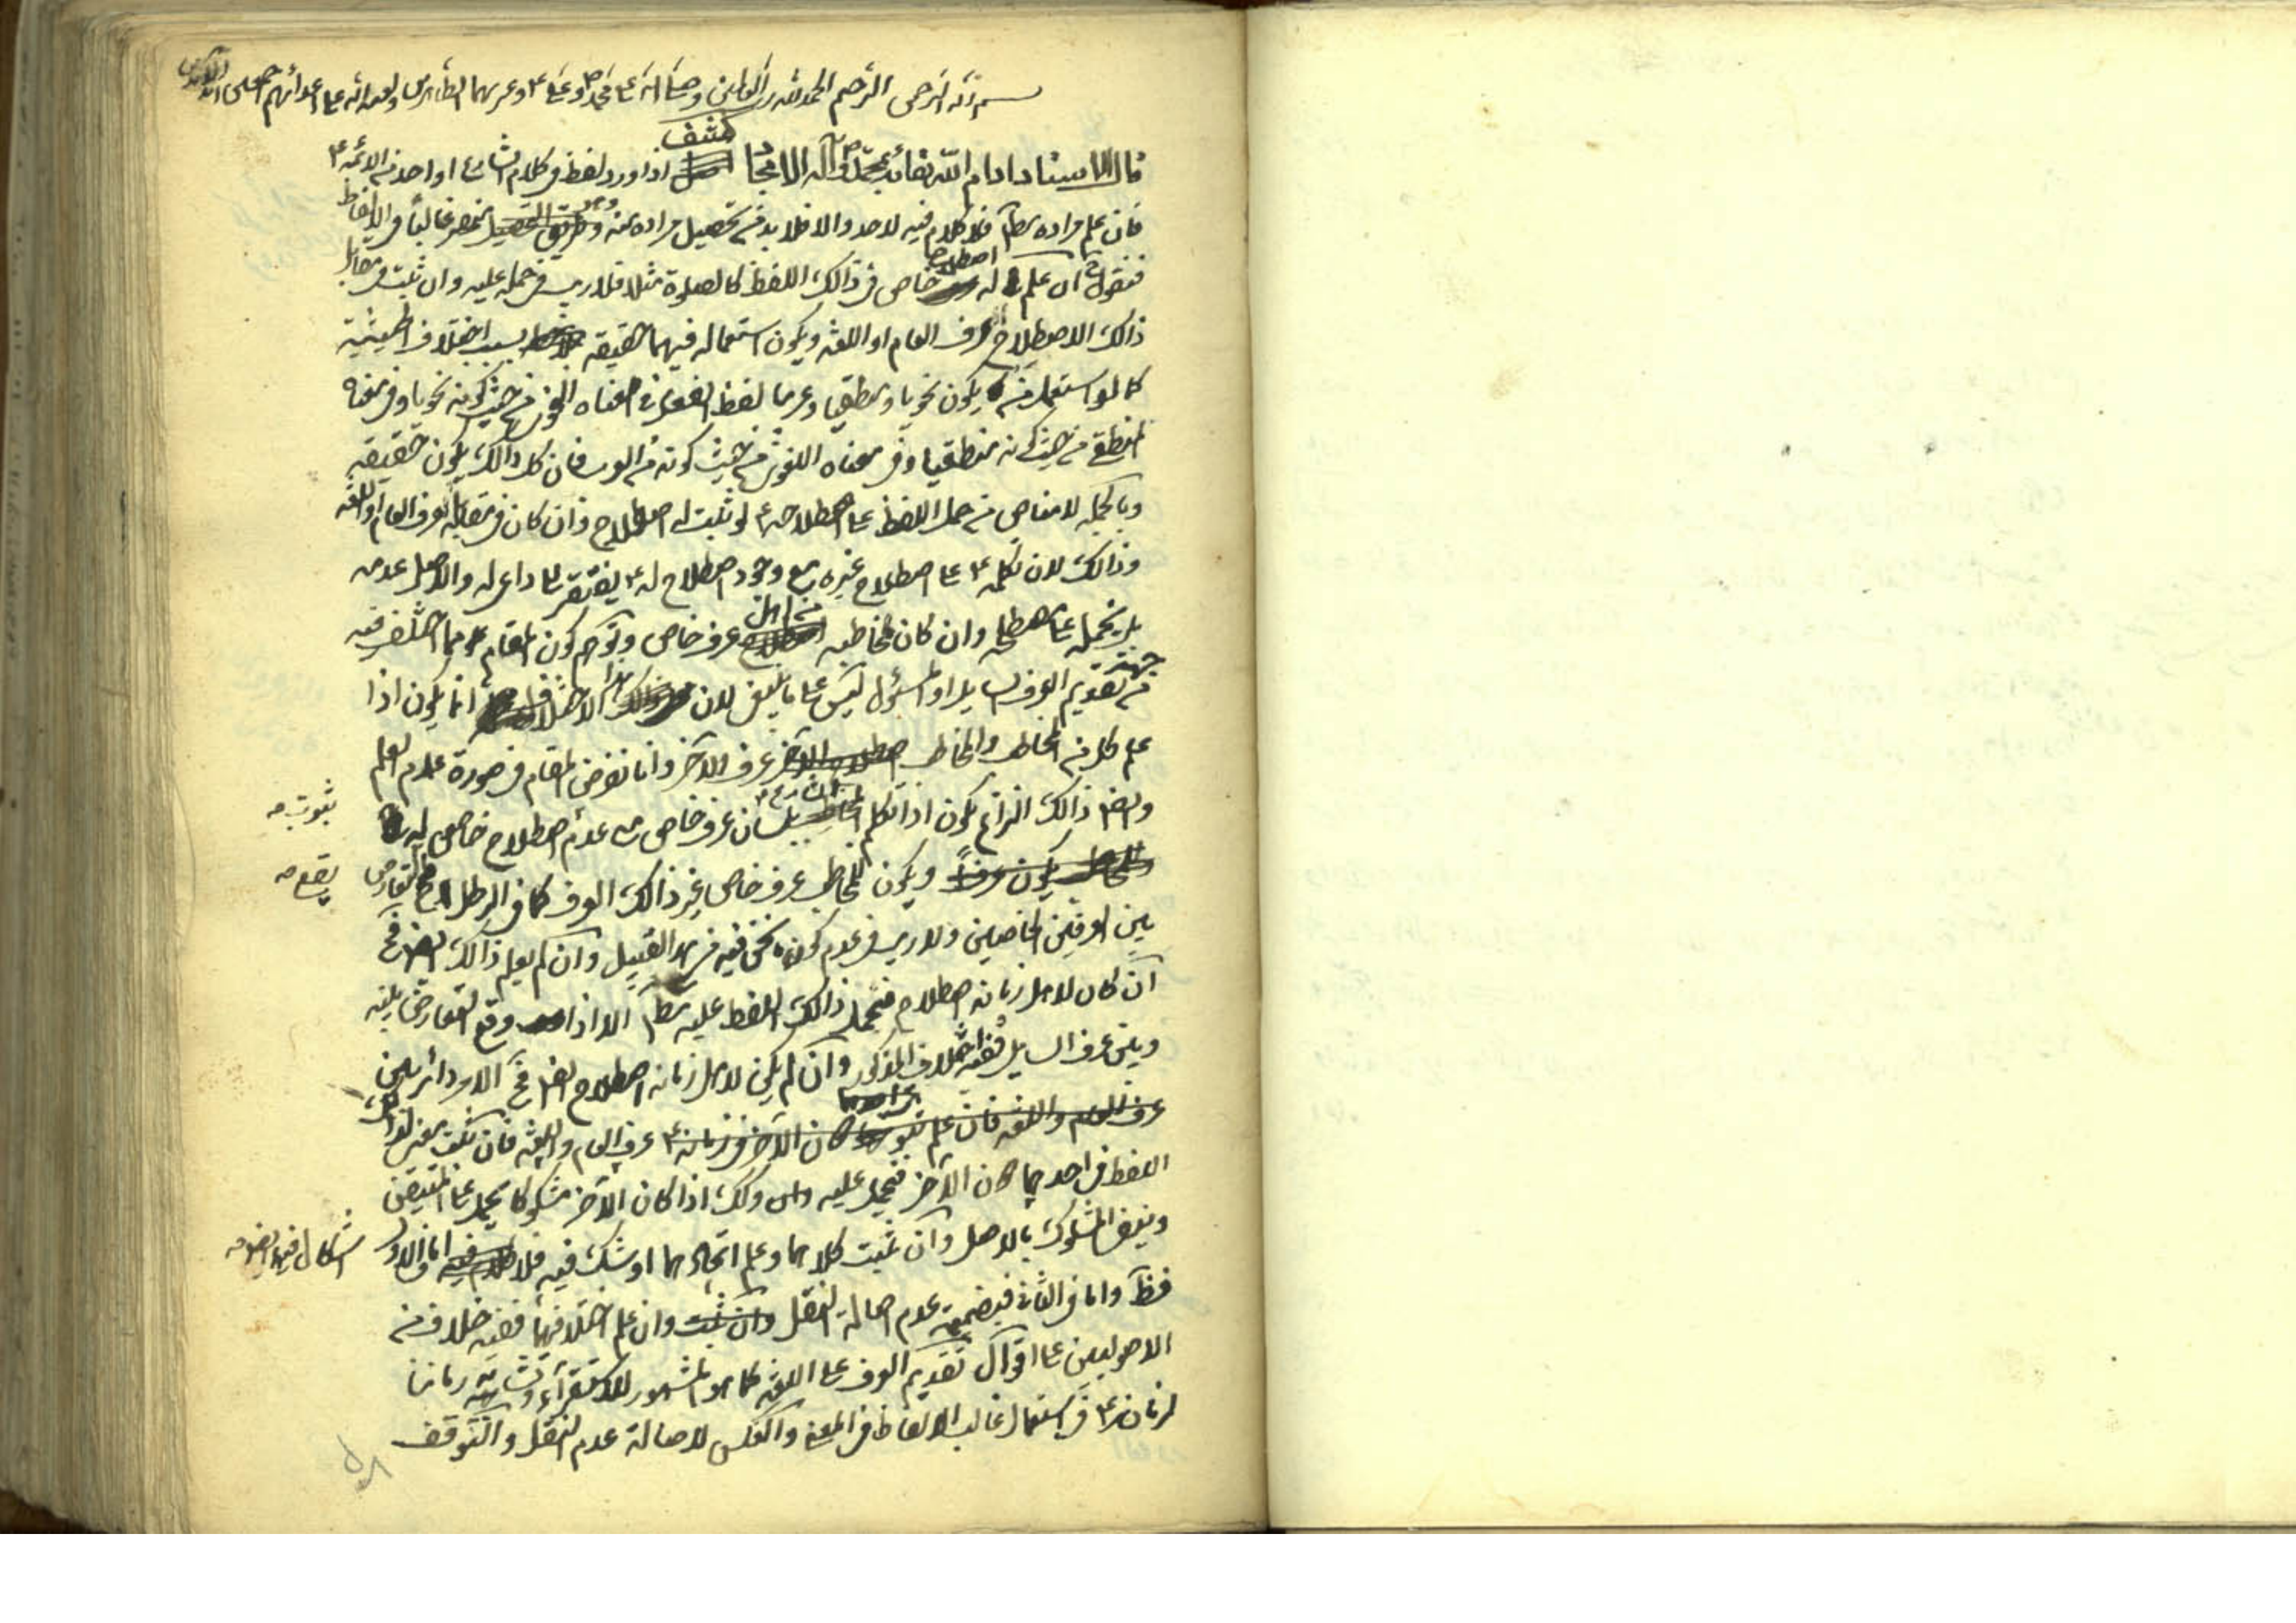 بسم الله الرحمن الرحيم الحمد لله رب العالمين وصلى الله على محمد ص وعلى ع وعترتهما الطاهرين ولعنة الله على اعدائهم اجمعين
كشف
قال الاستاد ادام الله بقائه بمحمد ص وآله الامجاد اذا ورد لفظ في كلام الشارع او احد من الائمة ع
فان علم مراده بخط فلا كلام فيه لاحد والا فلا بد من تحصيل مراده منه وهو منحصر غالبا في الالفاظ
فنقول ح ان علم له اصطلاح خاص في ذالك اللفظ كالصلوة مثلا فلا ريب في حمله عليه وان ثبت في مقابل
ذالك الاصطلاح عرف العام او اللغة ويكون استعماله فيهما حقيقة بسبب اختلاف الحيثية
كما لو استعمل من يكون نحويا ومنطقيا وعربيا لفظ الفعل في معناه النحوي من حيث كونه نحويا وفي معناه
المنطقي من حيث كونه منطقيا وفي معناه اللغوي من حيث كونه من العرب فان كل ذالك يكون حقيقة
وبالجملة لا مناص من حمل اللفظ على اصطلاحه ع لو ثبت له اصطلاح وان كان في مقابله العرف العام او اللغة
وذالك لان تكلمه ع على اصطلاح غيره مع وجود اصطلاح له ع يفتقر الى داع له والاصل عدمه
بل يحمل على مصطلحه وان كان مخاطبه من اهل عرف خاص وتوهم كون المقام مما اختلف فيه
من جهة تقديم العرف السايل او المسئول ليس على ما ينبغي لان هذا الاختلاف انما يكون اذا
علم كل من المخاطب والمخاطب عرف الآخر وانا نفرض المقام في صورة عدم العلم
وايضا ذالك النزاع يكون اذا تكلم الشارع ع بلسان عرف خاص مع عدم اصطلاح خاص له
ثبوت صح
ويكون للمخاطب عرف خاص غير ذالك العرف كما في الرطل فح التعارض
يقع صح
بين العرفين الخاصين ولا ريب في عدم كون ما نحن فيه من هذا القبيل وان لم يعلم ذالك ايضا فح
ان كان لاهل زمانه اصطلاح فيحمل ذالك اللفظ عليه الا اذا وقع التعارض بينه
وبين عرف السايل ففيه اختلاف المذكور وان لم يكن لاهل زمانه اصطلاح ايضا فح الامر دائر بين
عرف العام واللغة فان ثبت معنى لذالك
اللفظ في احدهما دون الآخر فيحمل عليه وكذلك اذا كان الآخر مشكوكا يحمل على المتيقن
وينفى المشكوك بالاصل وان ثبت كلاهما وعلم اتحادهما او شك فيه فلا اما في الاول
اشكال فيه ايضا صح
فظ واما في الثاني فبضميمة عدم اصالة النقل وان علم اختلافهما ففيه خلاف من
الاصوليين على اقوال تقديم العرف على اللغة كما هو المشهور للاستقراء وتشابه زماننا
لزمانه ع في استعمال غالب الالفاظ في المعنى والعكس لاصالة عدم النقل والتوقف